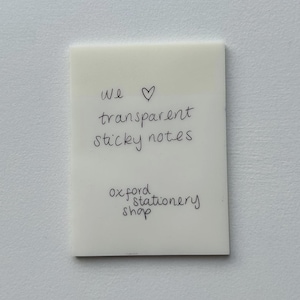 we ♡
transparent
sticky notes
oxford
stationery
shop